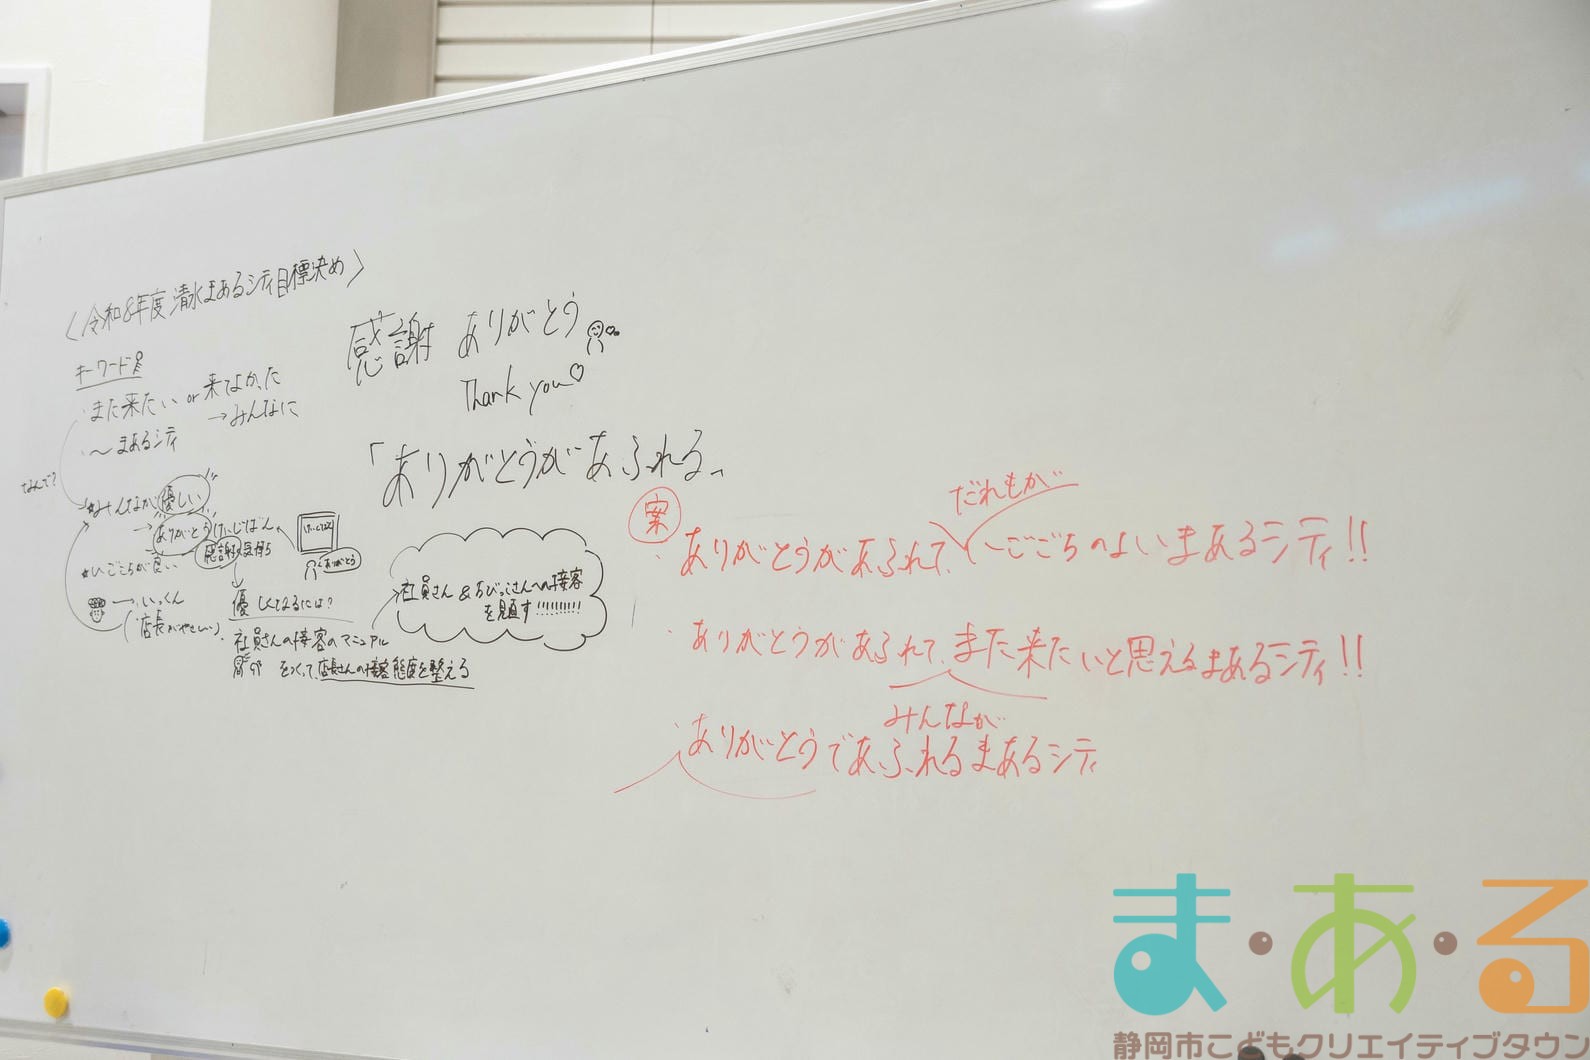 〈令和8年度 清水まあるシティ目標決め〉
キーワード
・また来たい or 来てよかった
→みんなに
〜まあるシティ
なんで?
★みんなが優しい
→ありがとうけいじばん
感謝の気持ち
★いごこちが良い
→いっくん
(店長がやさしい)
優しくなるには?
社員さんの接客のマニュアル
をつくって、店長さんの接客態度を整える
ありがとう
社員さん & ちびっこさんへの接客
を見直す!!!!!!!!!!
感謝 ありがとう
Thank you♡
「ありがとうがあふれる」
案
だれもが
・ありがとうがあふれて、いごごちのよいまあるシティ!!
・ありがとうがあふれて、また来たいと思えるまあるシティ!!
みんなが
・ありがとうであふれるまあるシティ
ま・あ・る
静岡市こどもクリエイティブタウン